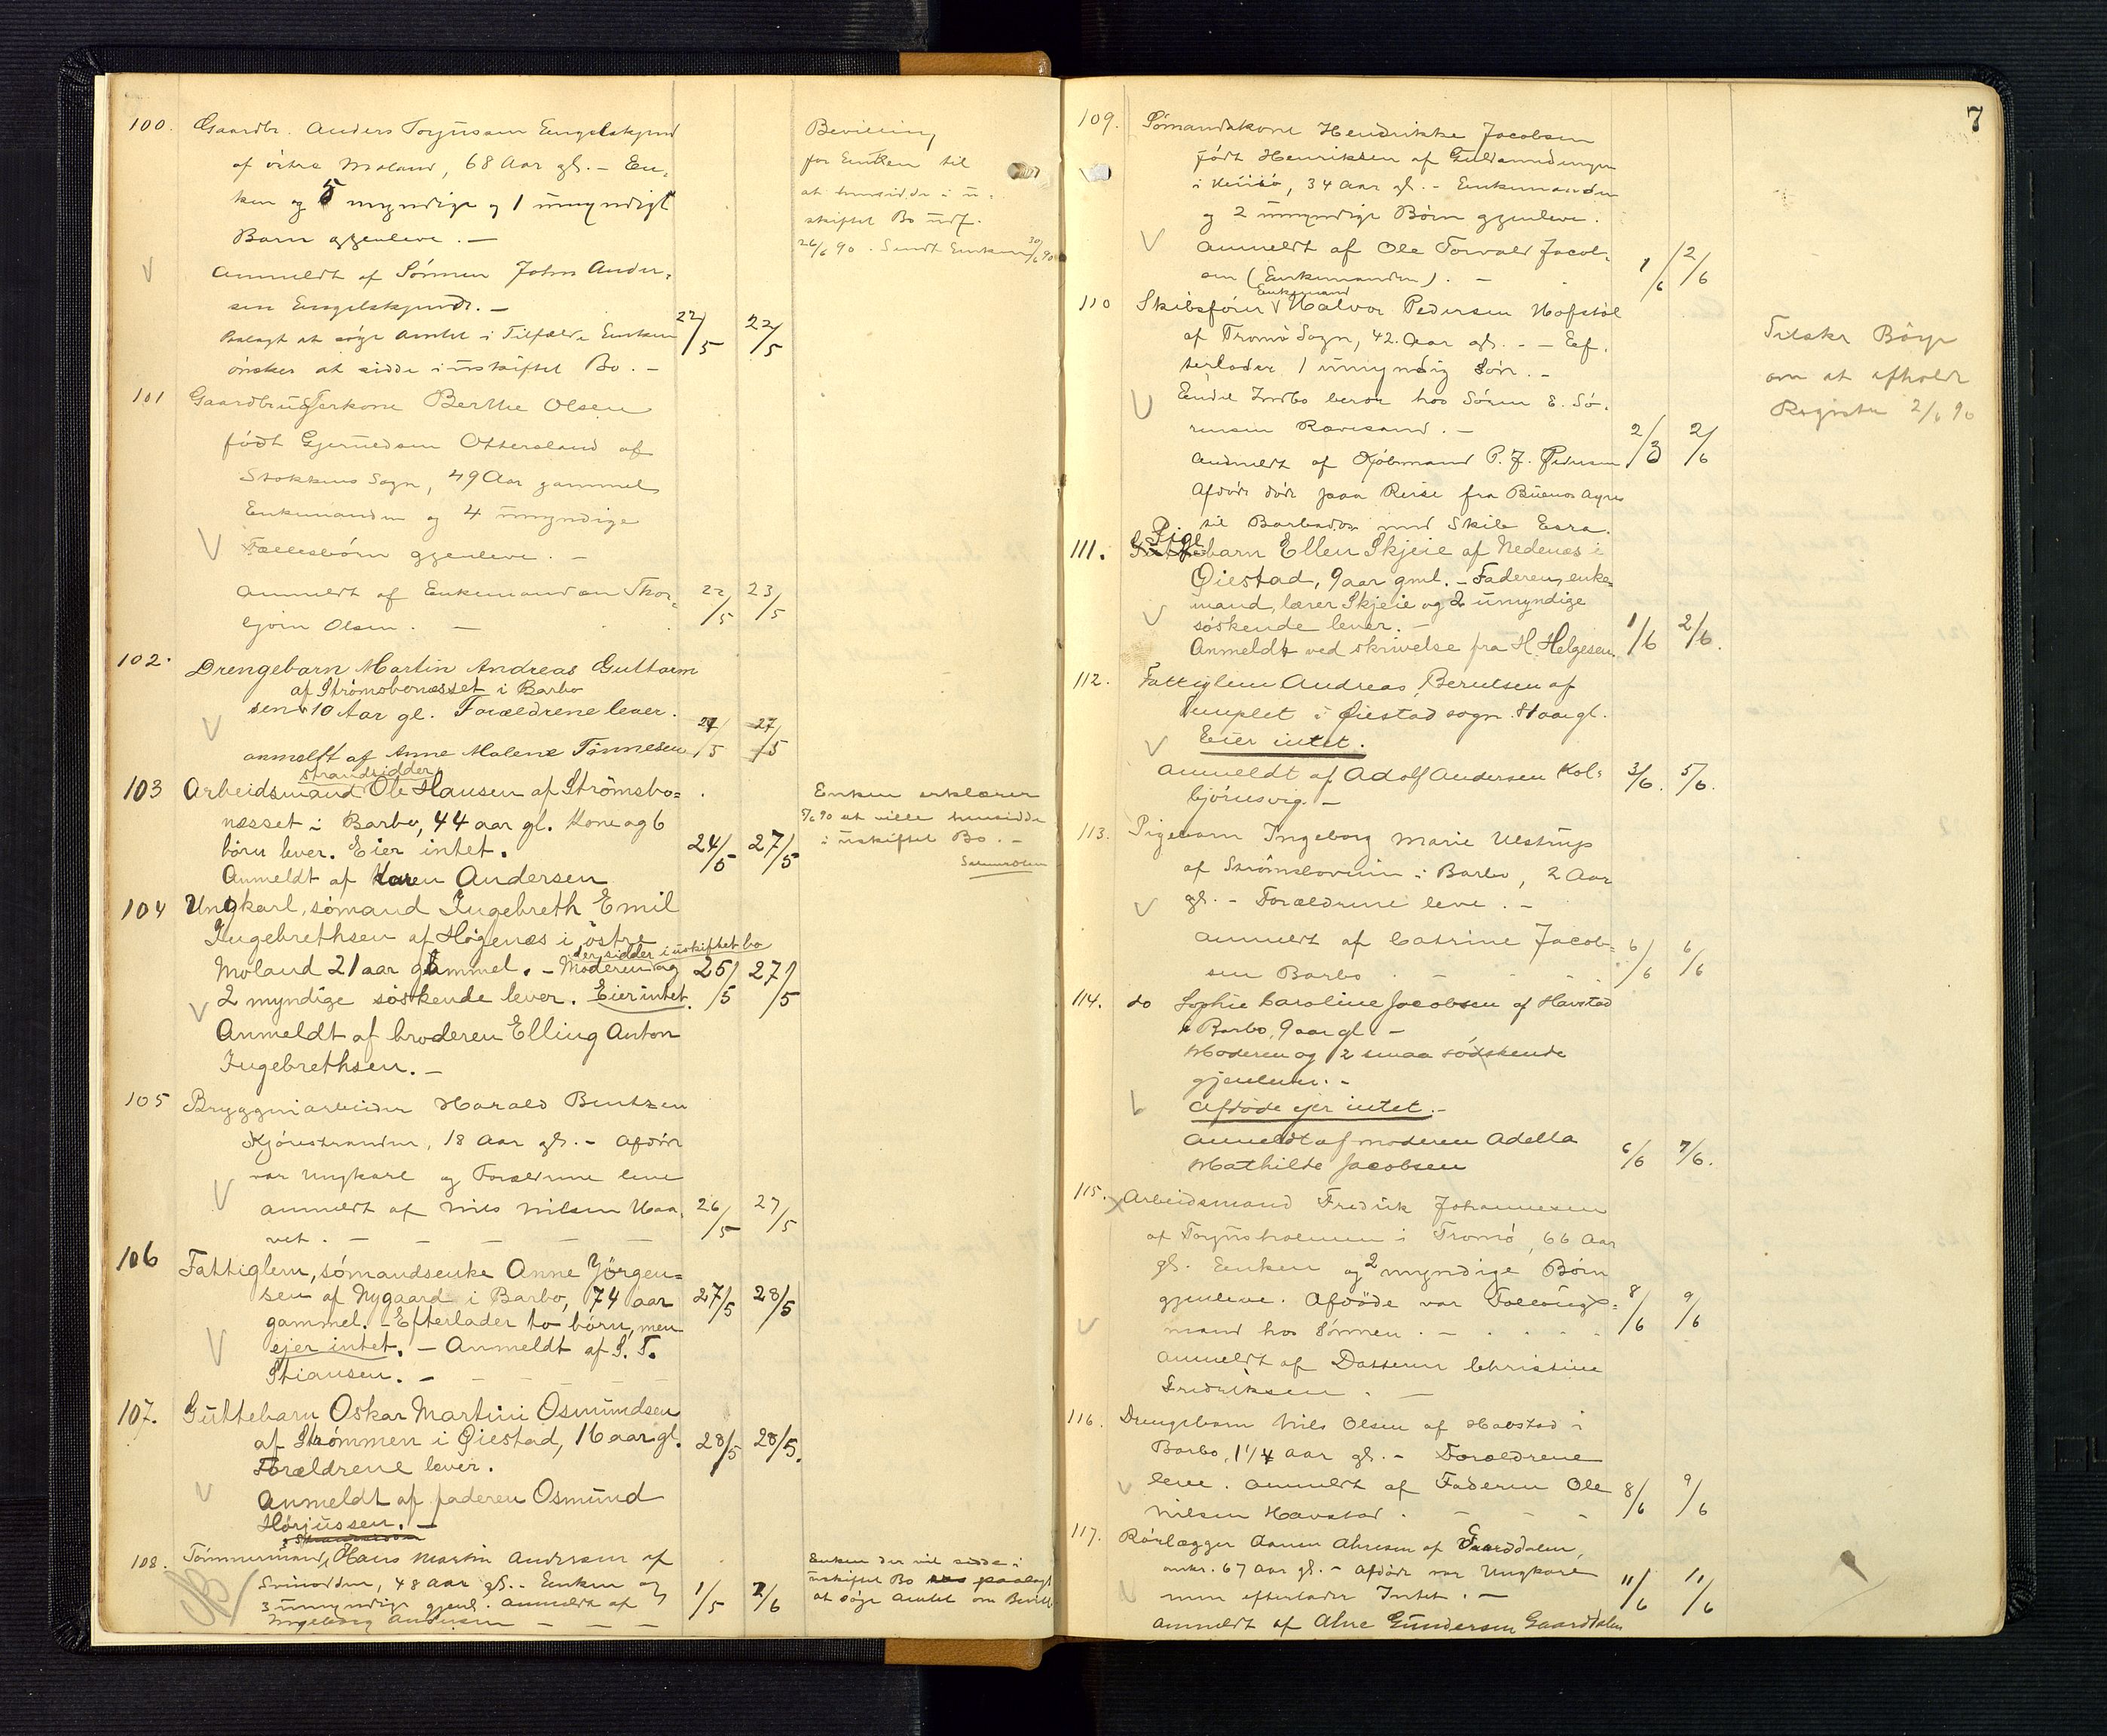 100. Gaardbr. Anders Torjussen Engelskjend
af östre Moland, 68 Aar gl. - En-
ken og 5 myndige og 1 umyndigt
Barn gjenleve. -
Anmeldt af Sönnen John Ander-
sen Engelskjend. -
Palagt at söge Amtet i Tilfælde Enken
önsker at sidde i uskiftet Bo. -
22/5 22/5
Bevilling
for Enken til
at hensidde i u-
skiftet Bo udf.
26/6 90. Sendt Enken 30/6 90
101 Gaardbrugerkone Berthe Olsen
födt Gjeruldsen Ottersland af
Stokkens Sogn, 49 Aar gammel
Enkemanden og 4 umyndige
Fællesbörn gjenleve. -
Anmeldt af Enkemanden Thor-
björn Olsen. -
22/5 23/5
102. Drengebarn Martin Andreas Guttorm
af Strömsbonesset i Barbo
sen 10 Aar gl. Forældrene lever.
anmeldt af Anne Malene Tönnesen
27/5 27/5
strandsidder
103 Arbeidsmand Ole Hansen af Strömsbo=
næsset i Barbo, 44 aar gl. Kone og 6
börn lever. Eier intet.
Anmeldt af Karen Andersen
24/5 27/5
Enken erklærer
7/6 90 at ville hensidde
i uskiftet Bo. -
104 Ungkarl, sömand Ingebreth Emil
Ingebrethsen af Högenæs i östre
der sidder i uskiftet bo
Moland 21 aar gammel. - Moderen og
2 myndige söskende lever. Eier intet.
Anmeldt af broderen Elling Anton
Ingebrethsen. -
25/5 27/5
105 Bryggeriarbeider Harald Bentzen
Kjönstranden, 18 Aar gl. - Afdöde
var Ungkarl og Forældrene leve
Anmeldt af Nils Nilsen Haa-
vet. - - - - -
26/5 27/5
106 Fattiglem, sömandsenke Anne Jörgen=
sen af Nygaard i Barbo, 74 aar
gammel. - Efterlader to börn, men
ejer intet. - Anmeldt af S. T.
Stiansen. -
27/5 28/5
107. Guttebarn Oskar Martin Osmundsen
af Strömmen i Öiestad, 16 aar gl.
Forældrene lever.
Anmeldt af faderen Osmund
Hörjussen. -
28/5 28/5.
108. Tömmermand Hans Martin Andersen af
48 Aar gl. - Enken og
3 umyndige gjenl. Anmeldt af
Ingeborg Andersen - - -
1/5 2/6
Enken der vil sidde i
uskiftet Bo paalagt
at söge Amtet om Bevill-
7
109. Sömandskone Hendrikke Jacobsen
födt Henriksen af Guldsmedengen
i Hisö, 34 Aar gl. - Enkemanden
og 2 umyndige Börn gjenleve.
Anmeldt af Ole Torvald Jacob-
sen (Enkemanden). -
1/6 2/6
Enkemand
110 Skibsförer Halvor Pedersen Hofstöl
af Tromö Sogn, 42 Aar gl. - - Ef-
terlader 1 umyndig Sön. -
Endel Indbo beror hos Sören E. Sö-
rensen Rævesand. -
Anmeldt af Kjöbmand P. J. Pedersen
Afdöde döde paa Reise fra Buenos Ayres
til Barbados med Skib Esra.
2/3 2/6
Tilskr Börge
om at afholde
Registr 2/6 90
Pige
111. Guttebarn Ellen Skjeie af Nedenæs i
Öiestad, 9 aar gml. - Faderen, enke-
mand, lærer Skjeie og 2 umyndige
söskende lever. -
Anmeldt ved skrivelse fra H. Helgesen.
1/6 2/6.
112. Fattiglem Andreas Berulsen af
i Öiestad sogn. 81 aar gl.
Eier intet.
Anmeldt af Adolf Andersen Kol-
björnsvig. -
3/6. 5/6.
113. Pigebarn Ingeborg Marie Ulstrup
af Strömsboveien i Barbo, 2 Aar
gl. - Forældrene leve. -
Anmeldt af Catrine Jacob-
sen Barbo. - - -
6/6 6/6
114. do Sophie Caroline Jacobsen af Havstad
i Barbo, 9 aar gl. -
Moderen og 2 smaa södskende
gjenlever. -
Afdöde ejer intet. -
Anmeldt af moderen Adella
Mathilde Jacobsen
6/6 7/6.
115. Arbeidsmand Fredrik Johannesen
af Torjusholmen i Tromö, 66 Aar
gl. Enken og 2 myndige Börn
gjenleve. Afdöde var Follaugs-
mand hos Sönnen. - - - -
Anmeldt af Datteren Christine
Fredriksen. -
8/6 9/6
116. Drengebarn Nils Olsen af Havstad i
Barbo, 1 1/4 Aar gl. - Forældrene
leve. Anmeldt af Faderen Ole
Nilsen Havstad. - - -
8/6 9/6
117. Rörlægger Aanen Ahresen af Gaarddalen,
omkr. 67 Aar gl. - Afdöde var Ungkarl
men efterlader Intet. -
Anmeldt af Ahre Gundersen Gaarddalen
11/6 11/6